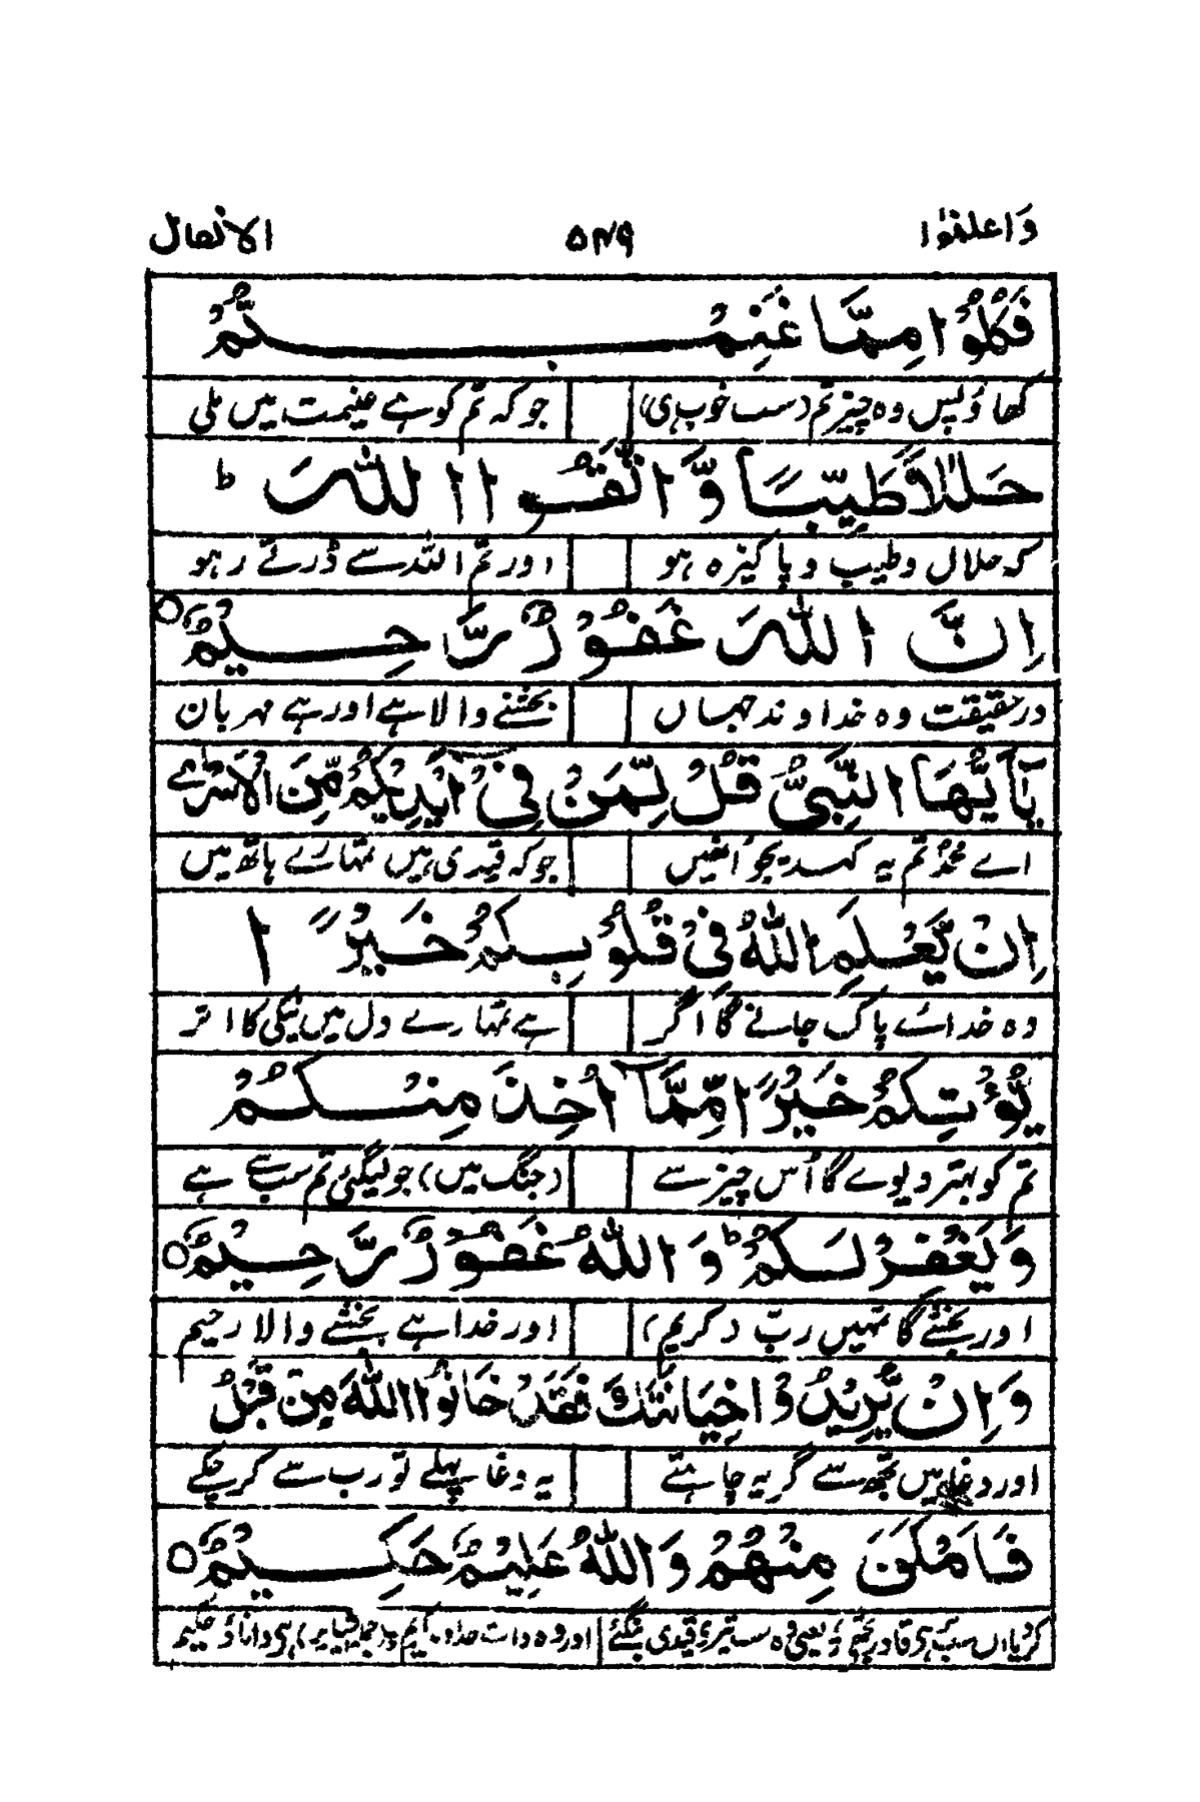 وَاعلَمُوا ۵۴۹ الانفال
فَكُلُوْا مِمَّا غَنِمْتُمْ
کھاؤ پس وہ چیز تم (سب خوب ہی) جو کہ تم کو ہے غنیمت میں ملی
حَلٰلًا طَيِّبًا وَّاتَّقُوا اللّٰهَ ؕ
کہ حلال و طیب و پاکیزہ ہو اور تم اللہ سے ڈرتے رہو
اِنَّ اللّٰهَ غَفُوْرٌ رَّحِيْمٌ ○
در حقیقت وہ خداوند جہاں بخشنے والا ہے اور ہے مہربان
يٰۤاَيُّهَا النَّبِيُّ قُلْ لِّمَنْ فِيْۤ اَيْدِيْكُمْ مِّنَ الْاَسْرٰۤى
اے محمدؐ تم یہ کہدیجو اُنھیں جو کہ قیدی ہیں تمہارے ہاتھ میں
اِنْ يَّعْلَمِ اللّٰهُ فِيْ قُلُوْبِكُمْ خَيْرًا
وہ خدائے پاک جانے گا اگر ہے تمہارے دل میں نیکی کا اثر
يُّؤْتِكُمْ خَيْرًا مِّمَّاۤ اُخِذَ مِنْكُمْ
تم کو بہتر دیوے گا اُس چیز سے (جنگ میں) جو لیگئی تم سب سے ہے
وَيَغْفِرْ لَكُمْ ؕ وَاللّٰهُ غَفُوْرٌ رَّحِيْمٌ ○
اور بخشے گا تمہیں ربّ (کریم) اور خدا ہے بخشنے والا رحیم
وَاِنْ يُّرِيْدُوْا خِيَانَتَكَ فَقَدْ خَانُوا اللّٰهَ مِنْ قَبْلُ
اور دغا ہیں تجھ سے گر یہ چاہتے یہ دغا پہلے تو رب سے کر چکے
فَاَمْكَنَ مِنْهُمْ وَاللّٰهُ عَلِيْمٌ حَكِيْمٌ ○
کر دیا ان سب پہ قادر تجھے یعنی وہ سب تیرے قیدی بنگئے اور وہ ذات خداوند کریم ہے دانا و حکیم